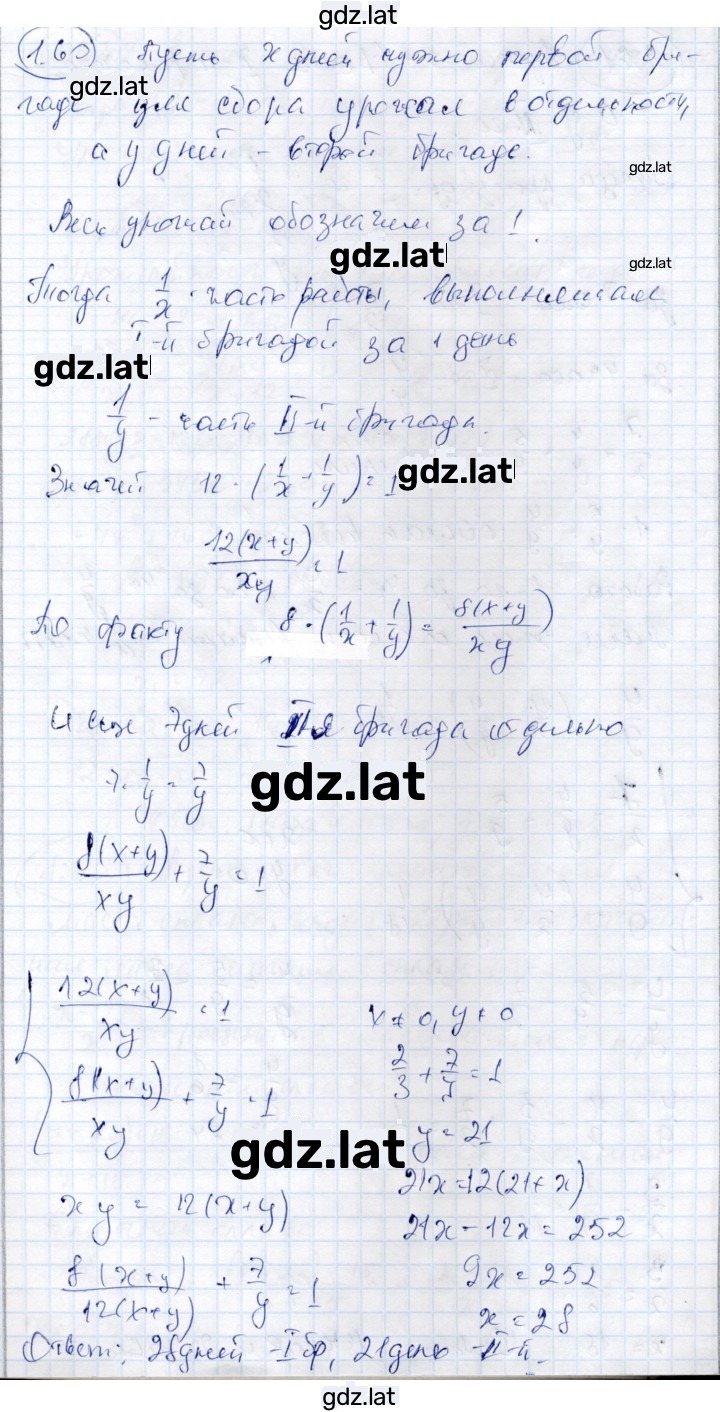 gdz.lat
1.60 Пусть x дней нужно первой бри-
gdz.lat
гаде для сбора урожая в отдельности,
а y дней - второй бригаде.
gdz.lat
Весь урожай обозначим за 1.
gdz.lat
gdz.lat
Тогда 1/x - часть работы, выполняемая
I-й бригадой за 1 день
gdz.lat
1/y - часть II-й бригады.
Значит 12 · (1/x + 1/y) = 1
gdz.lat
12(x+y)/xy = 1
По факту 8 · (1/x + 1/y) = 8(x+y)/xy
И еще 7 дней II-я бригада отдельно
7 · 1/y = 7/y
gdz.lat
8(x+y)/xy + 7/y = 1
12(x+y)/xy = 1
8(x+y)/xy + 7/y = 1
gdz.lat
xy = 12(x+y)
8(x+y)/12(x+y) + 7/y = 1
x ≠ 0, y ≠ 0
2/3 + 7/y = 1
y = 21
21x = 12(21+x)
21x - 12x = 252
9x = 252
x = 28
Ответ: 28 дней - I бр, 21 день - II-й.
gdz.lat